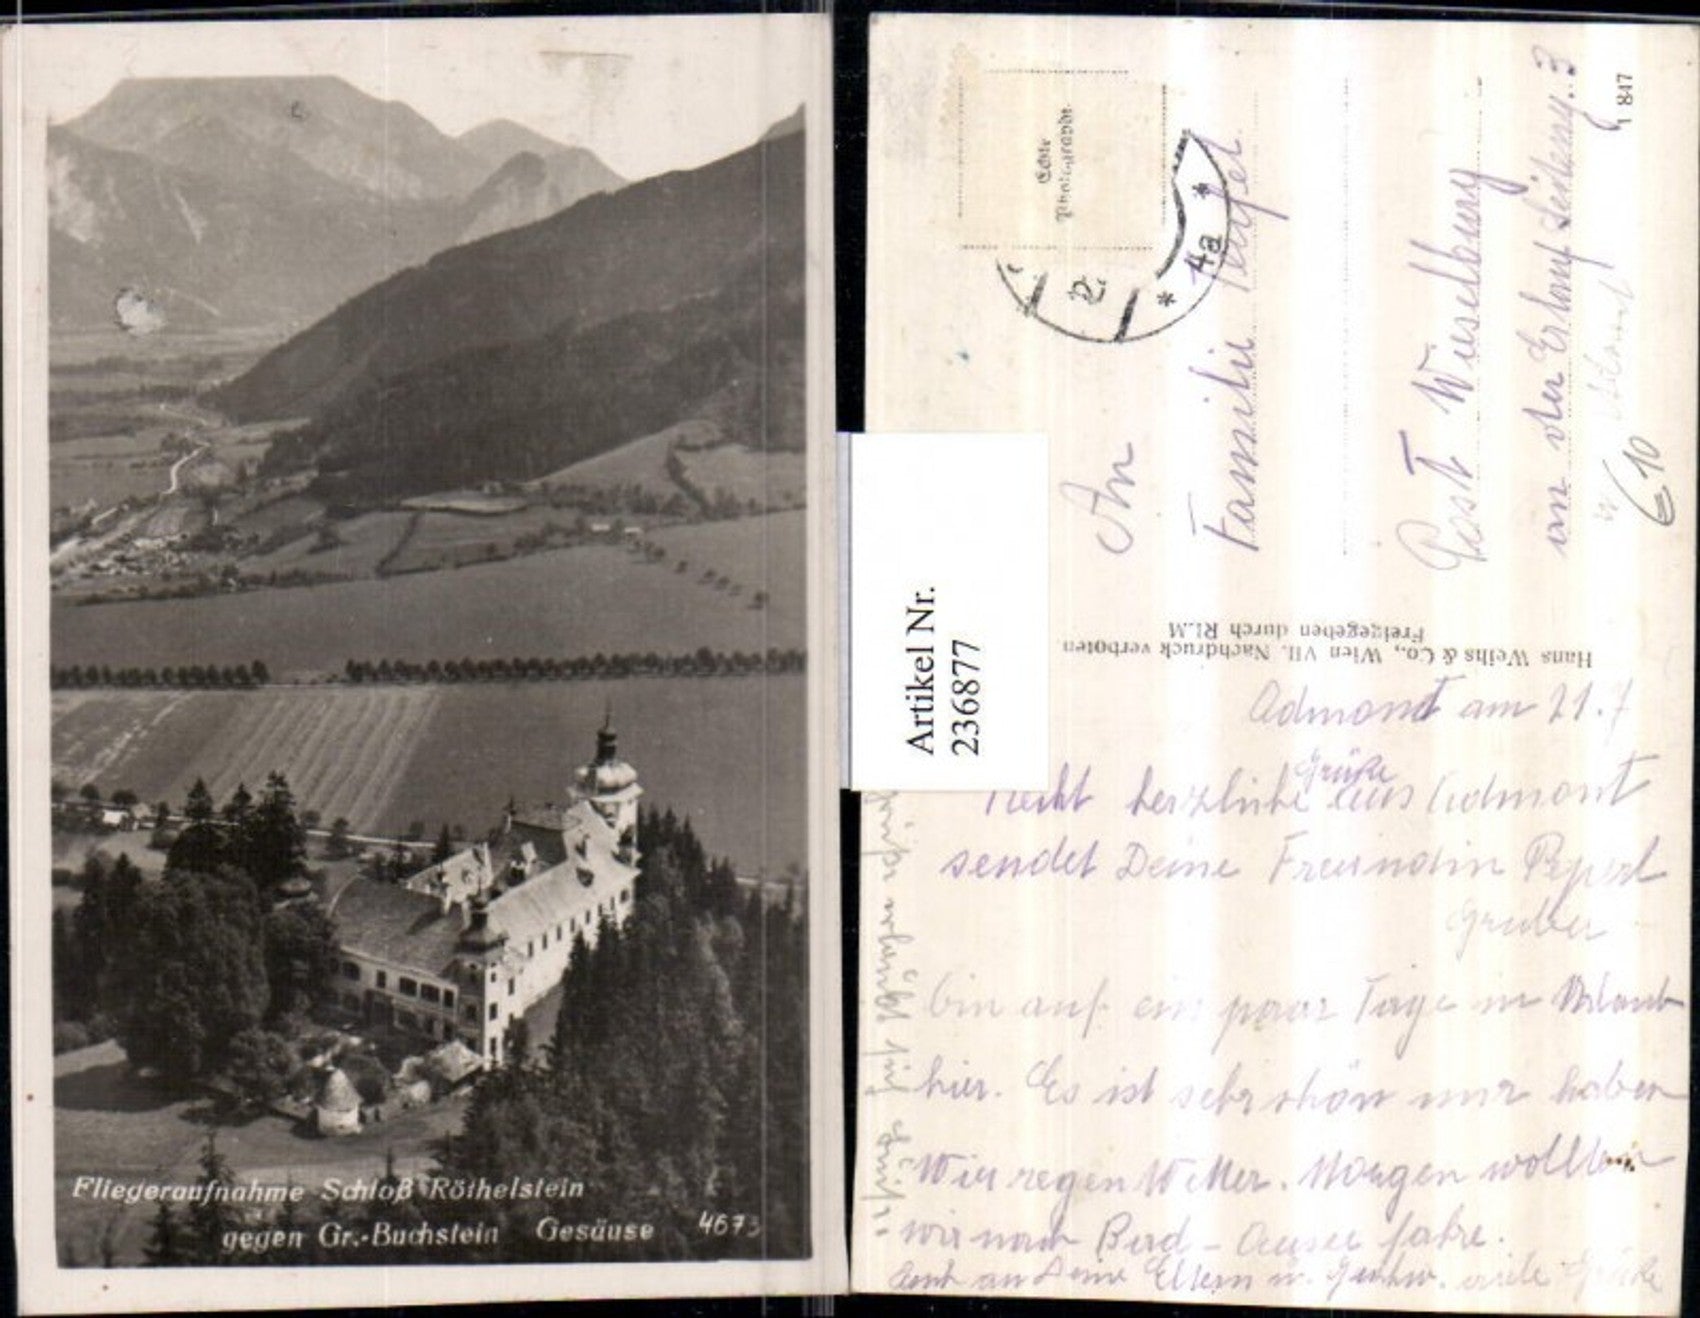 Fliegeraufnahme Schloß Röthelstein
gegen Gr.-Buchstein Gesäuse 4673
Artikel Nr.
236877
Echte
Photographie
4a
847
An
Familie
Post Wieselburg
an der Erlauf
€ 10
Hans Weihs & Co., Wien VII. Nachdruck verboten.
Freigegeben durch RLM
Admont am 21. 7
Recht herzliche Grüße aus Admont
sendet Deine Freundin
Gruber
bin auf ein paar Tage in Urlaub
hier. Es ist sehr schön nur haben
wir regen Wetter. Morgen wollen
wir nach Bad-Aussee fahre.
Auch an Deine Eltern u. Geschw. viele Grüße